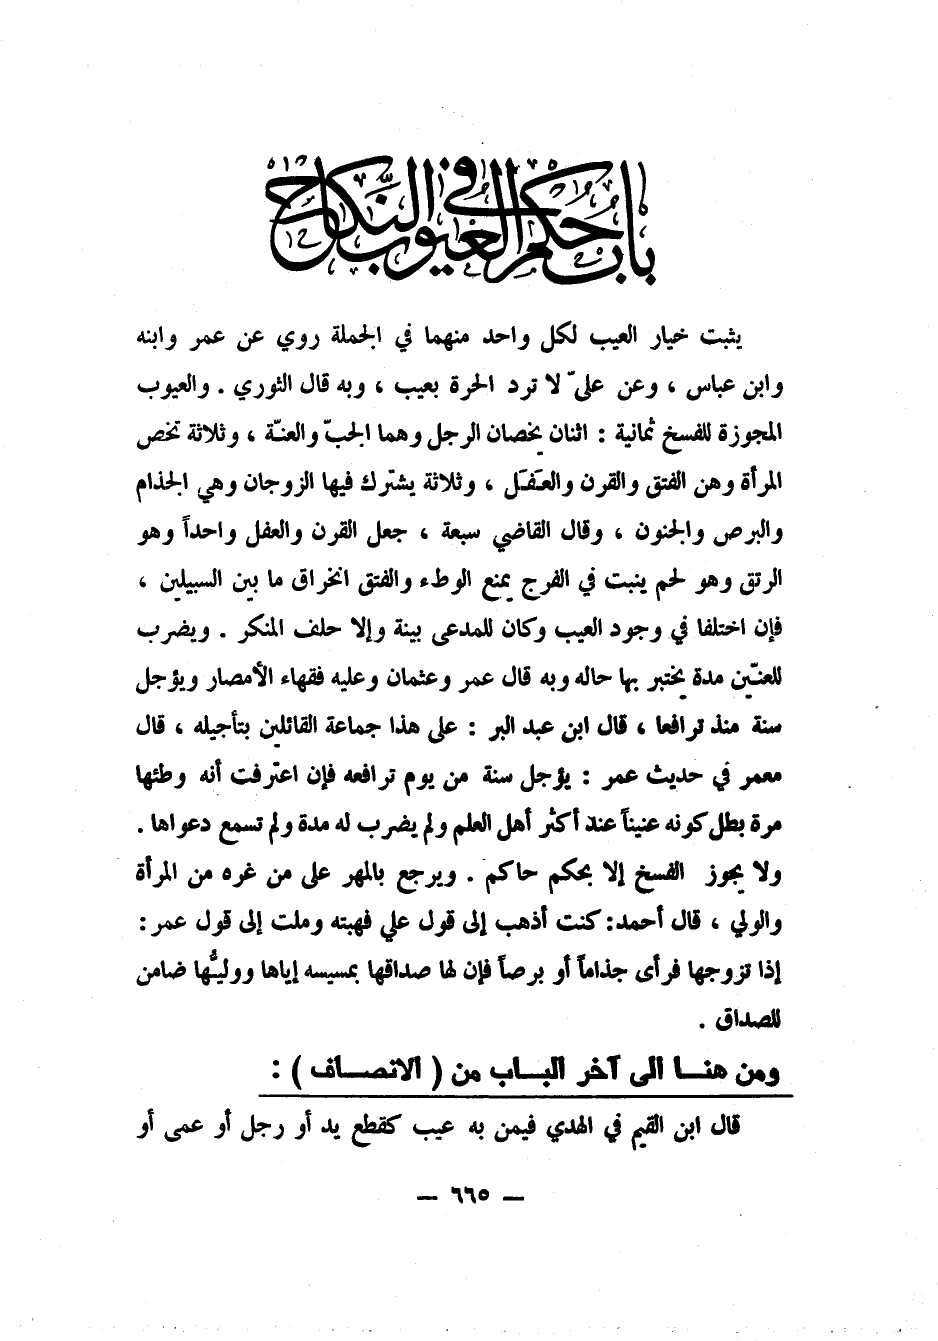 باب حكم العيوب في النكاح
يثبت خيار العيب لكل واحد منهما في الجملة روي عن عمر وابنه
وابن عباس ، وعن عليّ لا ترد الحرة بعيب ، وبه قال الثوري . والعيوب
المجوزة للفسخ ثمانية : اثنان يخصان الرجل وهما الجبّ والعنـّة ، وثلاثة تخص
المرأة وهن الفتق والقرن والعَفَل ، وثلاثة يشترك فيها الزوجان وهي الجذام
والبرص والجنون ، وقال القاضي سبعة ، جعل القرن والعفل واحداً وهو
الرتق وهو لحم ينبت في الفرج يمنع الوطء والفتق انخراق ما بين السبيلين ،
فإن اختلفا في وجود العيب وكان للمدعى بينة وإلا حلف المنكر . ويضرب
للعنّين مدة يختبر بها حاله وبه قال عمر وعثمان وعليه فقهاء الأمصار ويؤجل
سنة منذ ترافعا ، قال ابن عبد البر : على هذا جماعة القائلين بتأجيله ، قال
معمر في حديث عمر : يؤجل سنة من يوم ترافعه فإن اعترفت أنه وطئها
مرة بطل كونه عنيناً عند أكثر أهل العلم ولم يضرب له مدة ولم تسمع دعواها .
ولا يجوز الفسخ إلا بحكم حاكم . ويرجع بالمهر على من غره من المرأة
والولي ، قال أحمد: كنت أذهب إلى قول علي فهبته وملت إلى قول عمر :
إذا تزوجها فرأى جذاماً أو برصاً فإن لها صداقها بمسيسه إياها ووليُّها ضامن
للصداق .
ومن هنـــا الى آخر البـــاب من ( الانصـــاف ) :
قال ابن القيم في الهدي فيمن به عيب كقطع يد أو رجل أو عمى أو
— ٦٦٥ —